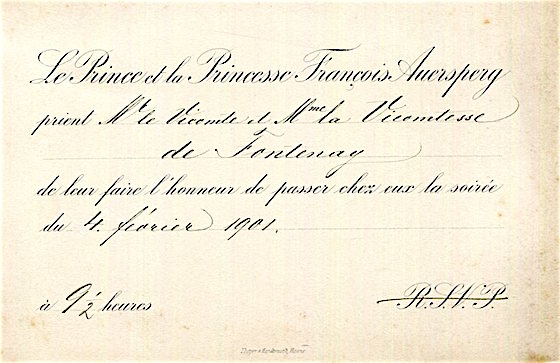 Le Prince et la Princesse François Auersperg
prient Mr le Vicomte et Mme la Vicomtesse
de Fontenay
de leur faire l'honneur de passer chez eux la soirée
du 4. février 1901.
à 9 1/2 heures
R.S.V.P.